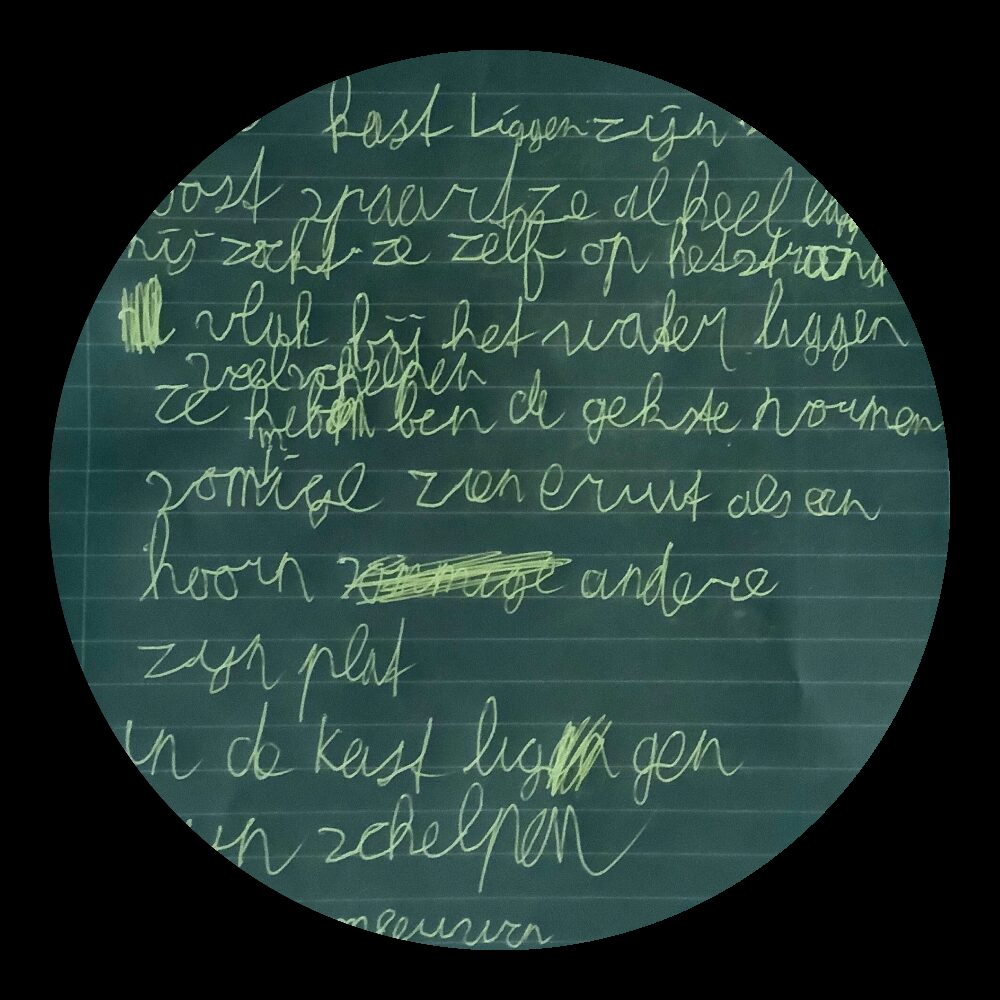 kast liggen zijn
oost spaart ze al heel
hij zocht ze zelf op het strand
vlak bij het water liggen
veel schelpen
ze heb ben de gekste vormen
zomige zien eruit als een
hoorn andere
zijn plat
in de kast lig gen
zijn schelpen
meeuwen